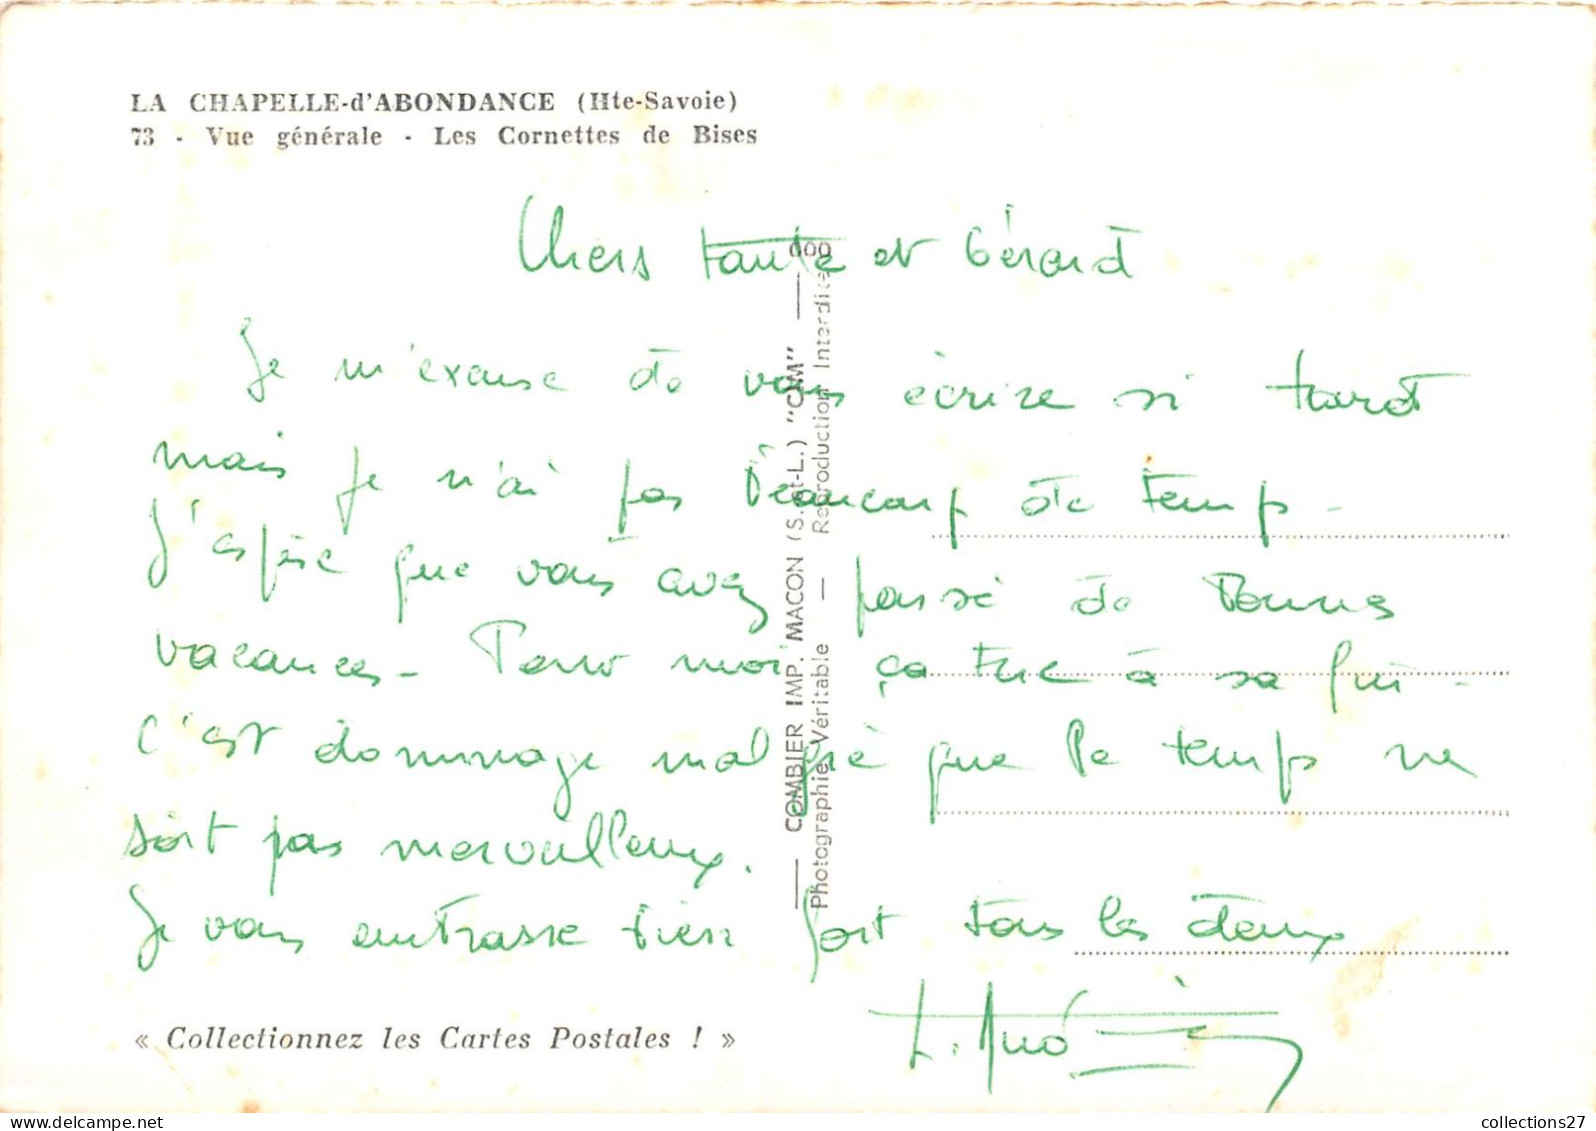 LA CHAPELLE-d'ABONDANCE (Hte-Savoie)
73 - Vue générale - Les Cornettes de Bises
Chers tante et Gérard
Je m'excuse de vous écrire si tard
mais je n'ai pas beaucoup de temps -
J'espère que vous avez passé de bonnes
vacances - Pour moi ça tire à sa fin -
C'est dommage malgré que le temps ne
soit pas merveilleux.
Je vous embrasse bien fort tous les deux
COMBIER IMP. MACON (S.-et-L.) "CIM"
Photographie Véritable — Reproduction Interdite
« Collectionnez les Cartes Postales ! »
collections27